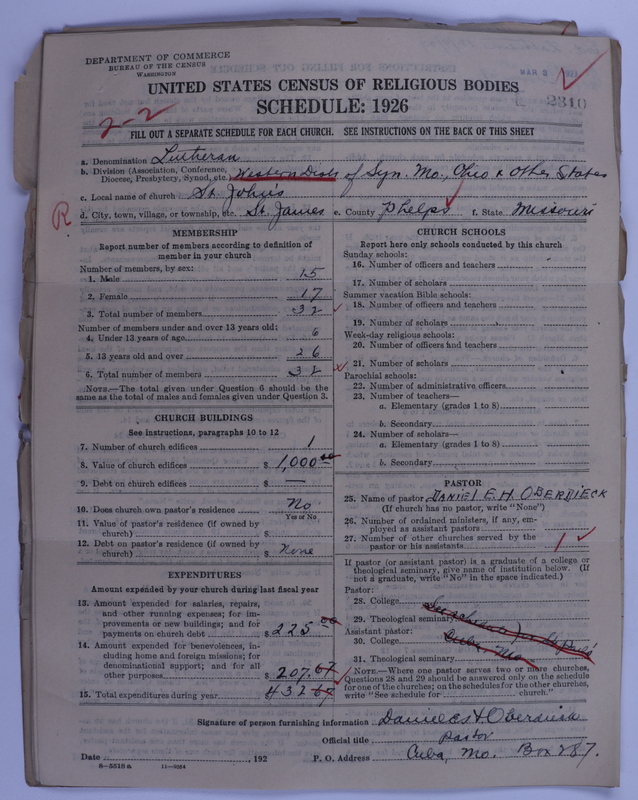 DEPARTMENT OF COMMERCE
BUREAU OF THE CENSUS
WASHINGTON
UNITED STATES CENSUS OF RELIGIOUS BODIES
SCHEDULE: 1926
2310
2-2
FILL OUT A SEPARATE SCHEDULE FOR EACH CHURCH. SEE INSTRUCTIONS ON THE BACK OF THIS SHEET
a. Denomination Lutheran
b. Division (Association, Conference, Diocese, Presbytery, Synod, etc. Western Dist. of Syn. Mo., Ohio & Other States
c. Local name of church St. John's
R
d. City, town, village, or township, etc. St. James e. County Phelps f. State Missouri
MEMBERSHIP
Report number of members according to definition of
member in your church
Number of members, by sex:
1. Male 15
2. Female 17
3. Total number of members 32
Number of members under and over 13 years old:
4. Under 13 years of age 6
5. 13 years old and over 26
6. Total number of members 32
NOTE.—The total given under Question 6 should be
the same as the total of males and females given under Question 3.
CHURCH BUILDINGS
See instructions, paragraphs 10 to 12
7. Number of church edifices 1
8. Value of church edifices $ 1,000.00
9. Debt on church edifices $ —
10. Does church own pastor's residence No
Yes or No
11. Value of pastor's residence (if owned by
church) $
12. Debt on pastor's residence (if owned by
church) $ None
EXPENDITURES
Amount expended by your church during last fiscal year
13. Amount expended for salaries, repairs,
and other running expenses; for im-
provements or new buildings; and for
payments on church debt $ 225.00
14. Amount expended for benevolences, in-
cluding home and foreign missions; for
denominational support; and for all
other purposes $ 207.67
15. Total expenditures during year 432 67
CHURCH SCHOOLS
Report here only schools conducted by this church
Sunday schools:
16. Number of officers and teachers
17. Number of scholars
Summer vacation Bible schools:
18. Number of officers and teachers
19. Number of scholars
Week-day religious schools:
20. Number of officers and teachers
21. Number of scholars
Parochial schools:
22. Number of administrative officers
23. Number of teachers—
a. Elementary (grades 1 to 8)
b. Secondary
24. Number of scholars—
a. Elementary (grades 1 to 8)
b. Secondary
PASTOR
25. Name of pastor DANIEL E. H. OBERDIECK
(If church has no pastor, write "None")
26. Number of ordained ministers, if any, em-
ployed as assistant pastors
27. Number of other churches served by the
pastor or his assistants 1
If pastor (or assistant pastor) is a graduate of a college or
theological seminary, give name of institution below. (If
not a graduate, write "No" in the space indicated.)
Pastor:
28. College
See schedule for St. Paul's
29. Theological seminary
Assistant pastor:
30. College
Cuba, Mo.
31. Theological seminary
NOTE.—Where one pastor serves two or more churches,
Questions 28 and 29 should be answered only on the schedule
for one of the churches; on the schedules for the other churches,
write "See schedule for church."
Signature of person furnishing information Daniel E. H. Oberdieck
Official title Pastor
Date , 192 P. O. Address Cuba, Mo. Box 287.
8-5518a 11-9064